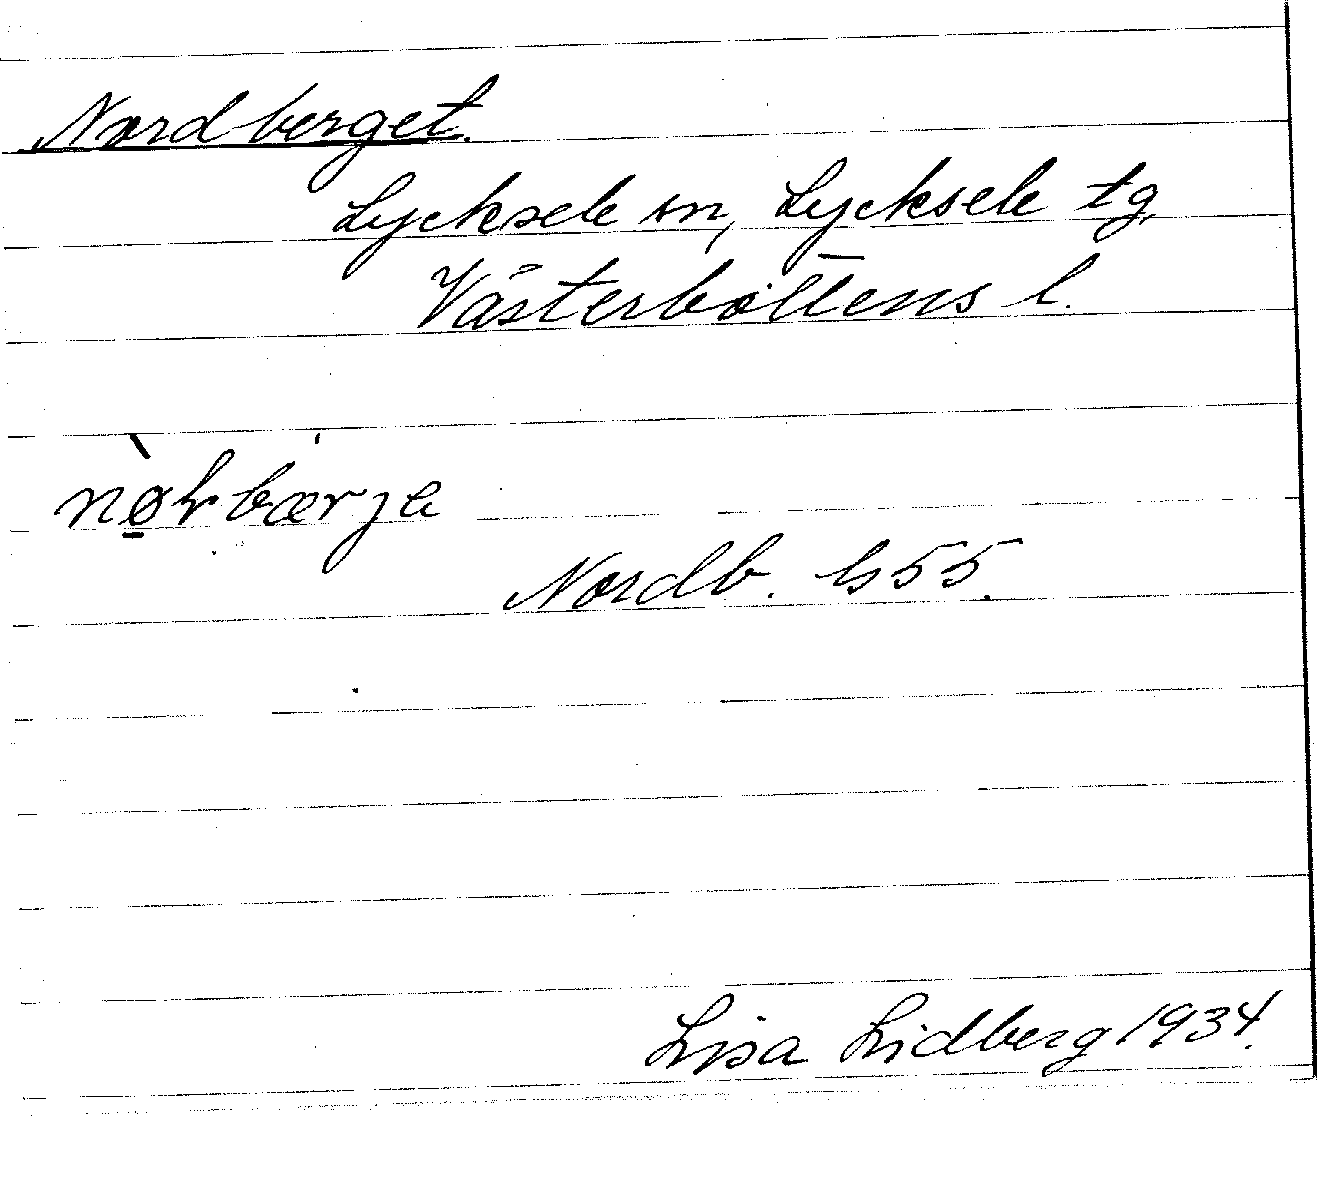 Nordberget.
Lycksele sn, Lycksele tg,
Västerbottens l.
nø̀rbærje
Nordb. h 55.
Lisa Lidberg 1934.